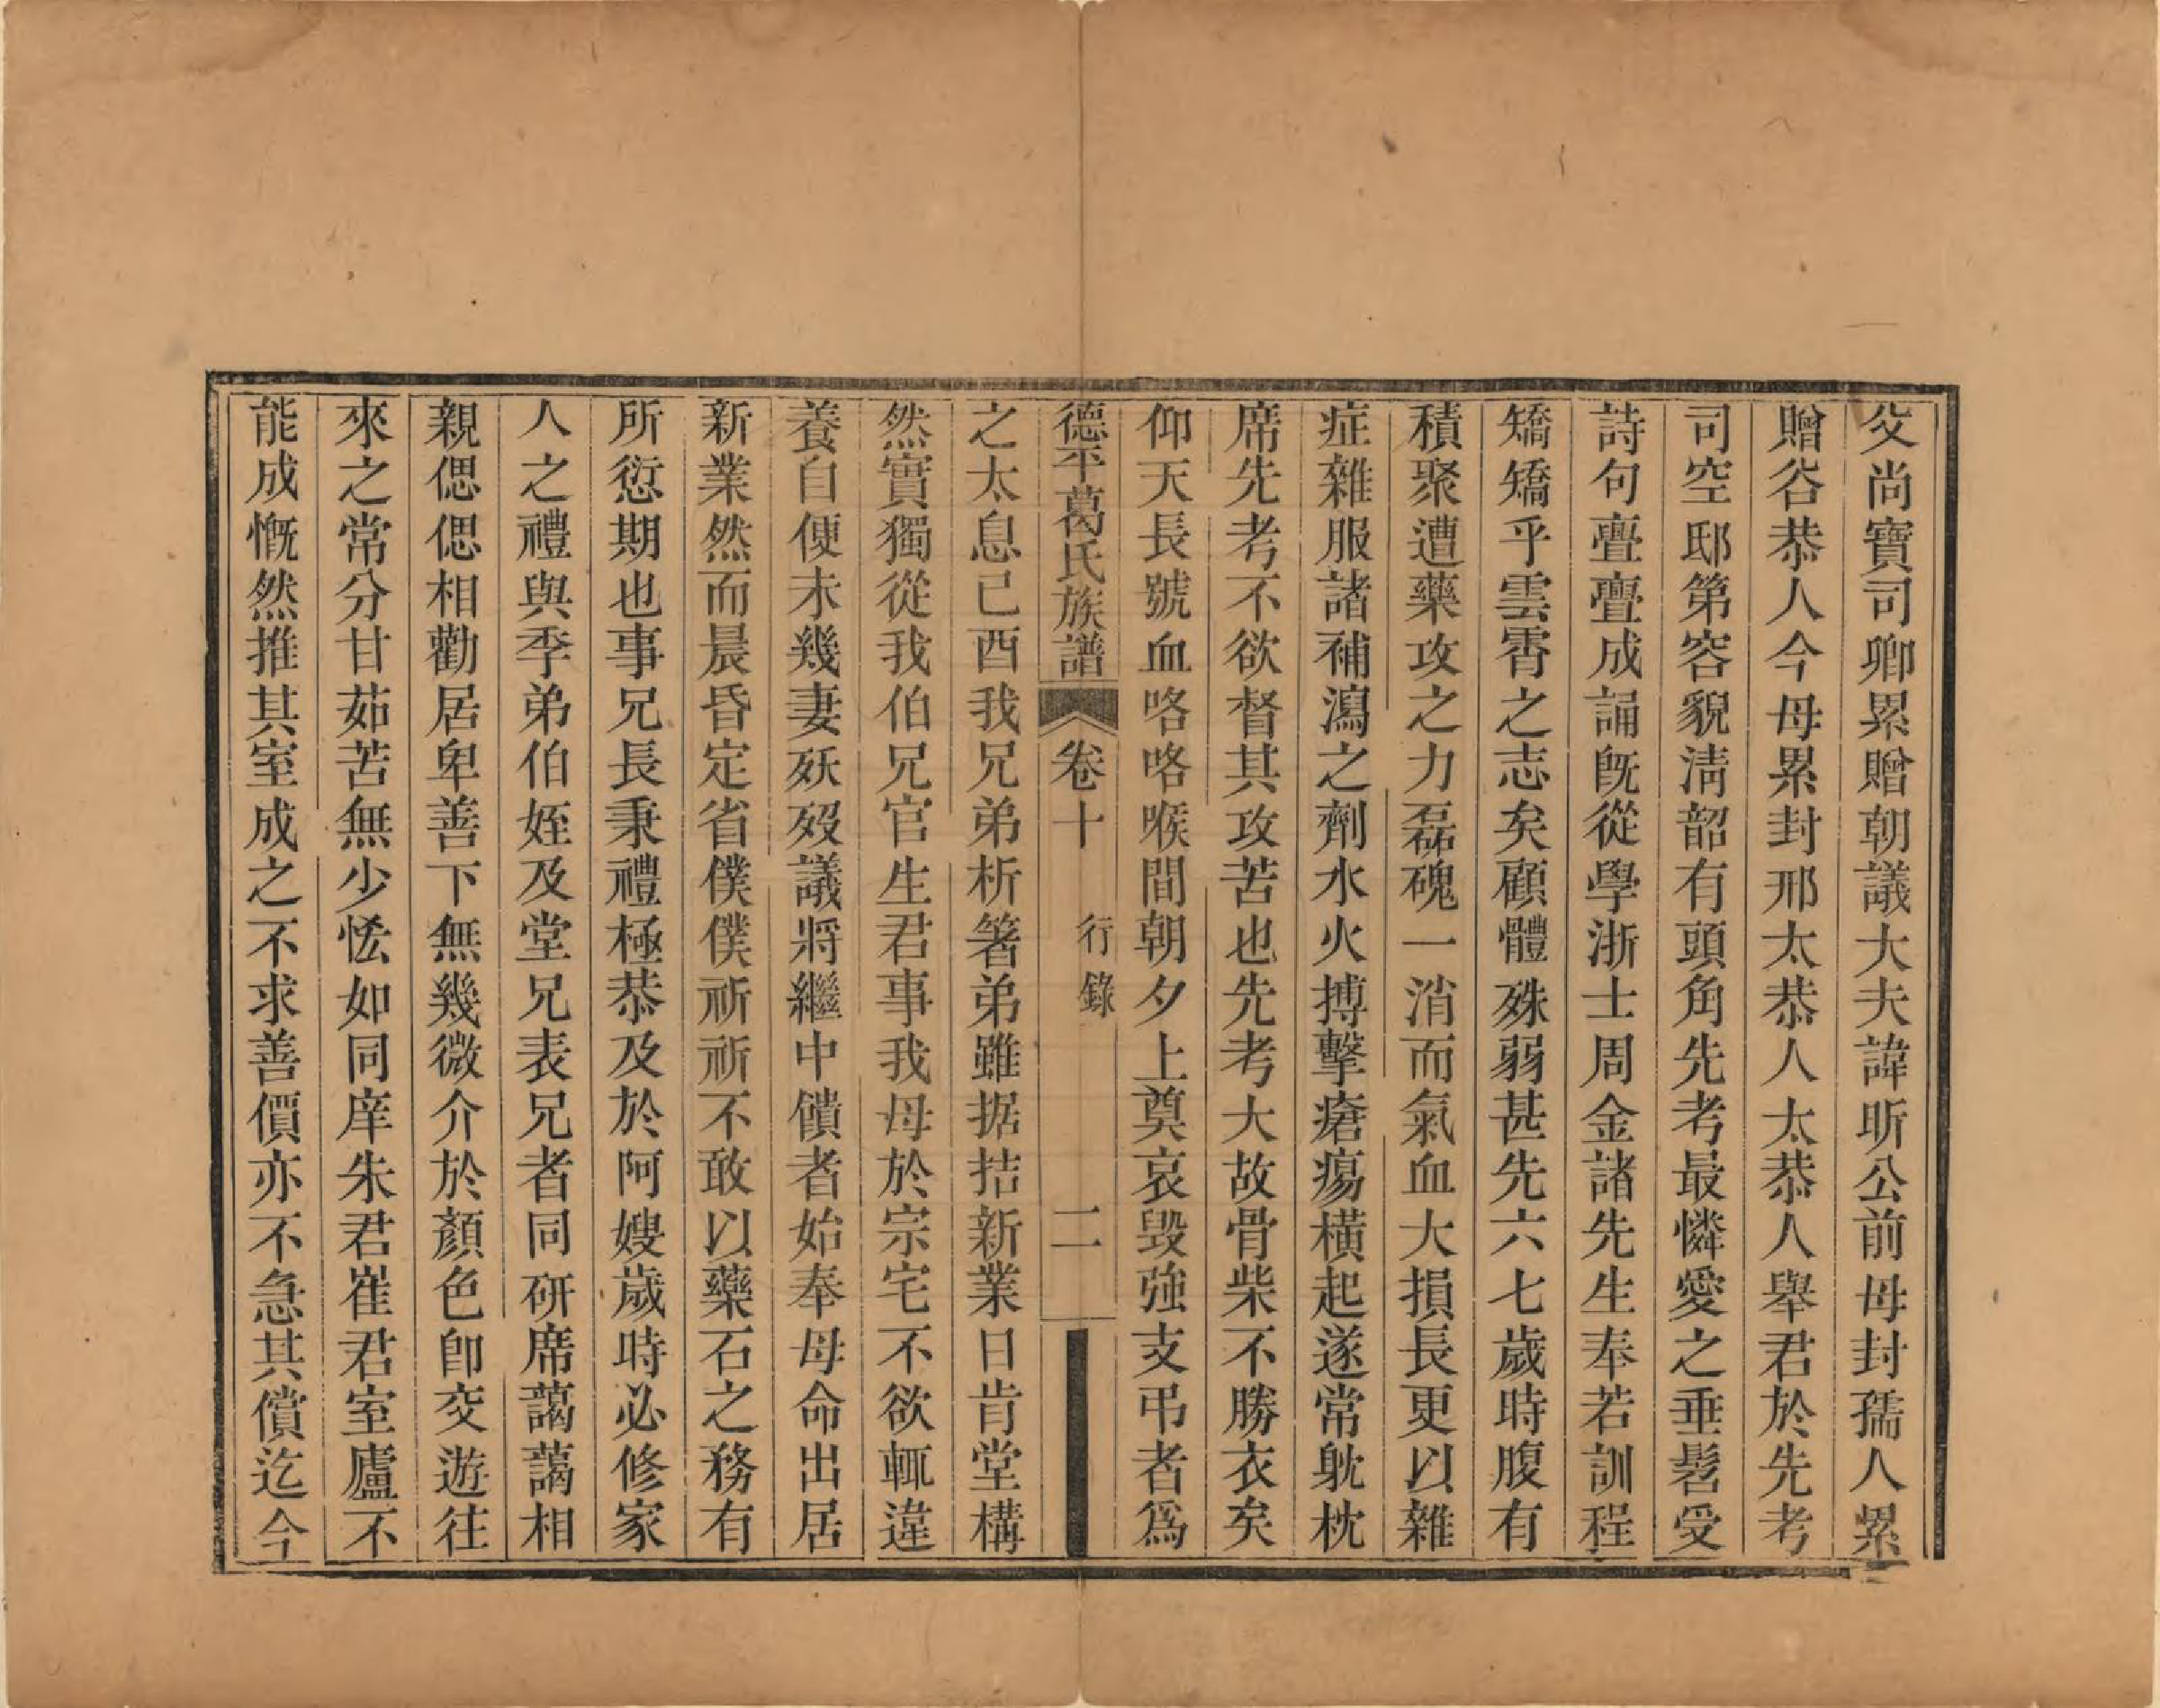 父尚寶司卿累贈朝議大夫諱昕公前母封孺人累
贈谷恭人今母累封邢太恭人太恭人舉君於先考
司空邸第容貌淸韶有頭角先考最憐愛之垂髫受
詩句亹亹成誦旣從學浙士周金諸先生奉若訓程
矯矯乎雲霄之志矣顧體殊弱甚先六七歲時腹有
積聚遭藥攻之力磊磈一消而氣血大損長更以雜
症雜服諸補瀉之劑水火搏擊瘡瘍橫起遂常躭枕
席先考不欲督其攻苦也先考大故骨柴不勝衣矣
仰天長號血咯咯喉間朝夕上奠哀毀強支弔者爲
德平葛氏族譜 卷十 行錄 二
之太息已酉我兄弟析箸弟雖据拮新業日肯堂構
然實獨從我伯兄官生君事我母於宗宅不欲輒違
養自便未幾妻殀歿議將繼中饋者始奉母命出居
新業然而晨昏定省僕僕祈祈不敢以藥石之務有
所愆期也事兄長秉禮極恭及於阿嫂歲時必修家
人之禮與季弟伯姪及堂兄表兄者同研席藹藹相
親偲偲相勸居卑善下無幾微介於顏色卽交遊往
來之常分甘茹苦無少恡如同庠朱君崔君室廬不
能成慨然推其室成之不求善價亦不急其償迄今